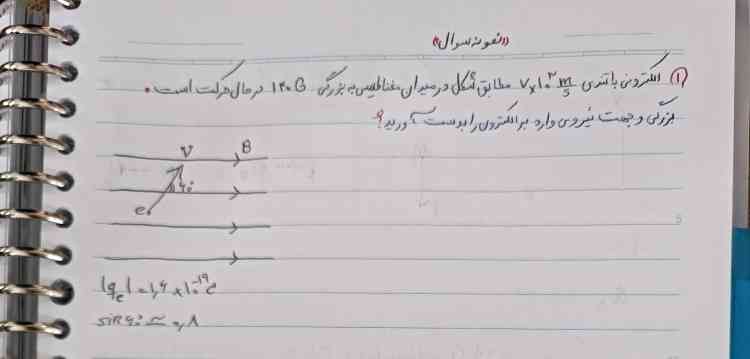 «نمونه سوال»
① الکترونی با تندی ۷×۱۰^۳ m/s مطابق شکل در میدان مغناطیسی به بزرگی ۱۲۰G در حال حرکت است.
بزرگی و جهت نیروی وارد بر الکترون را بدست آورید؟
V B
۶۰°
e
|qₑ| = ۱٫۶ × ۱۰^-۱۹ c
sin ۶۰° ≃ ۰٫۸